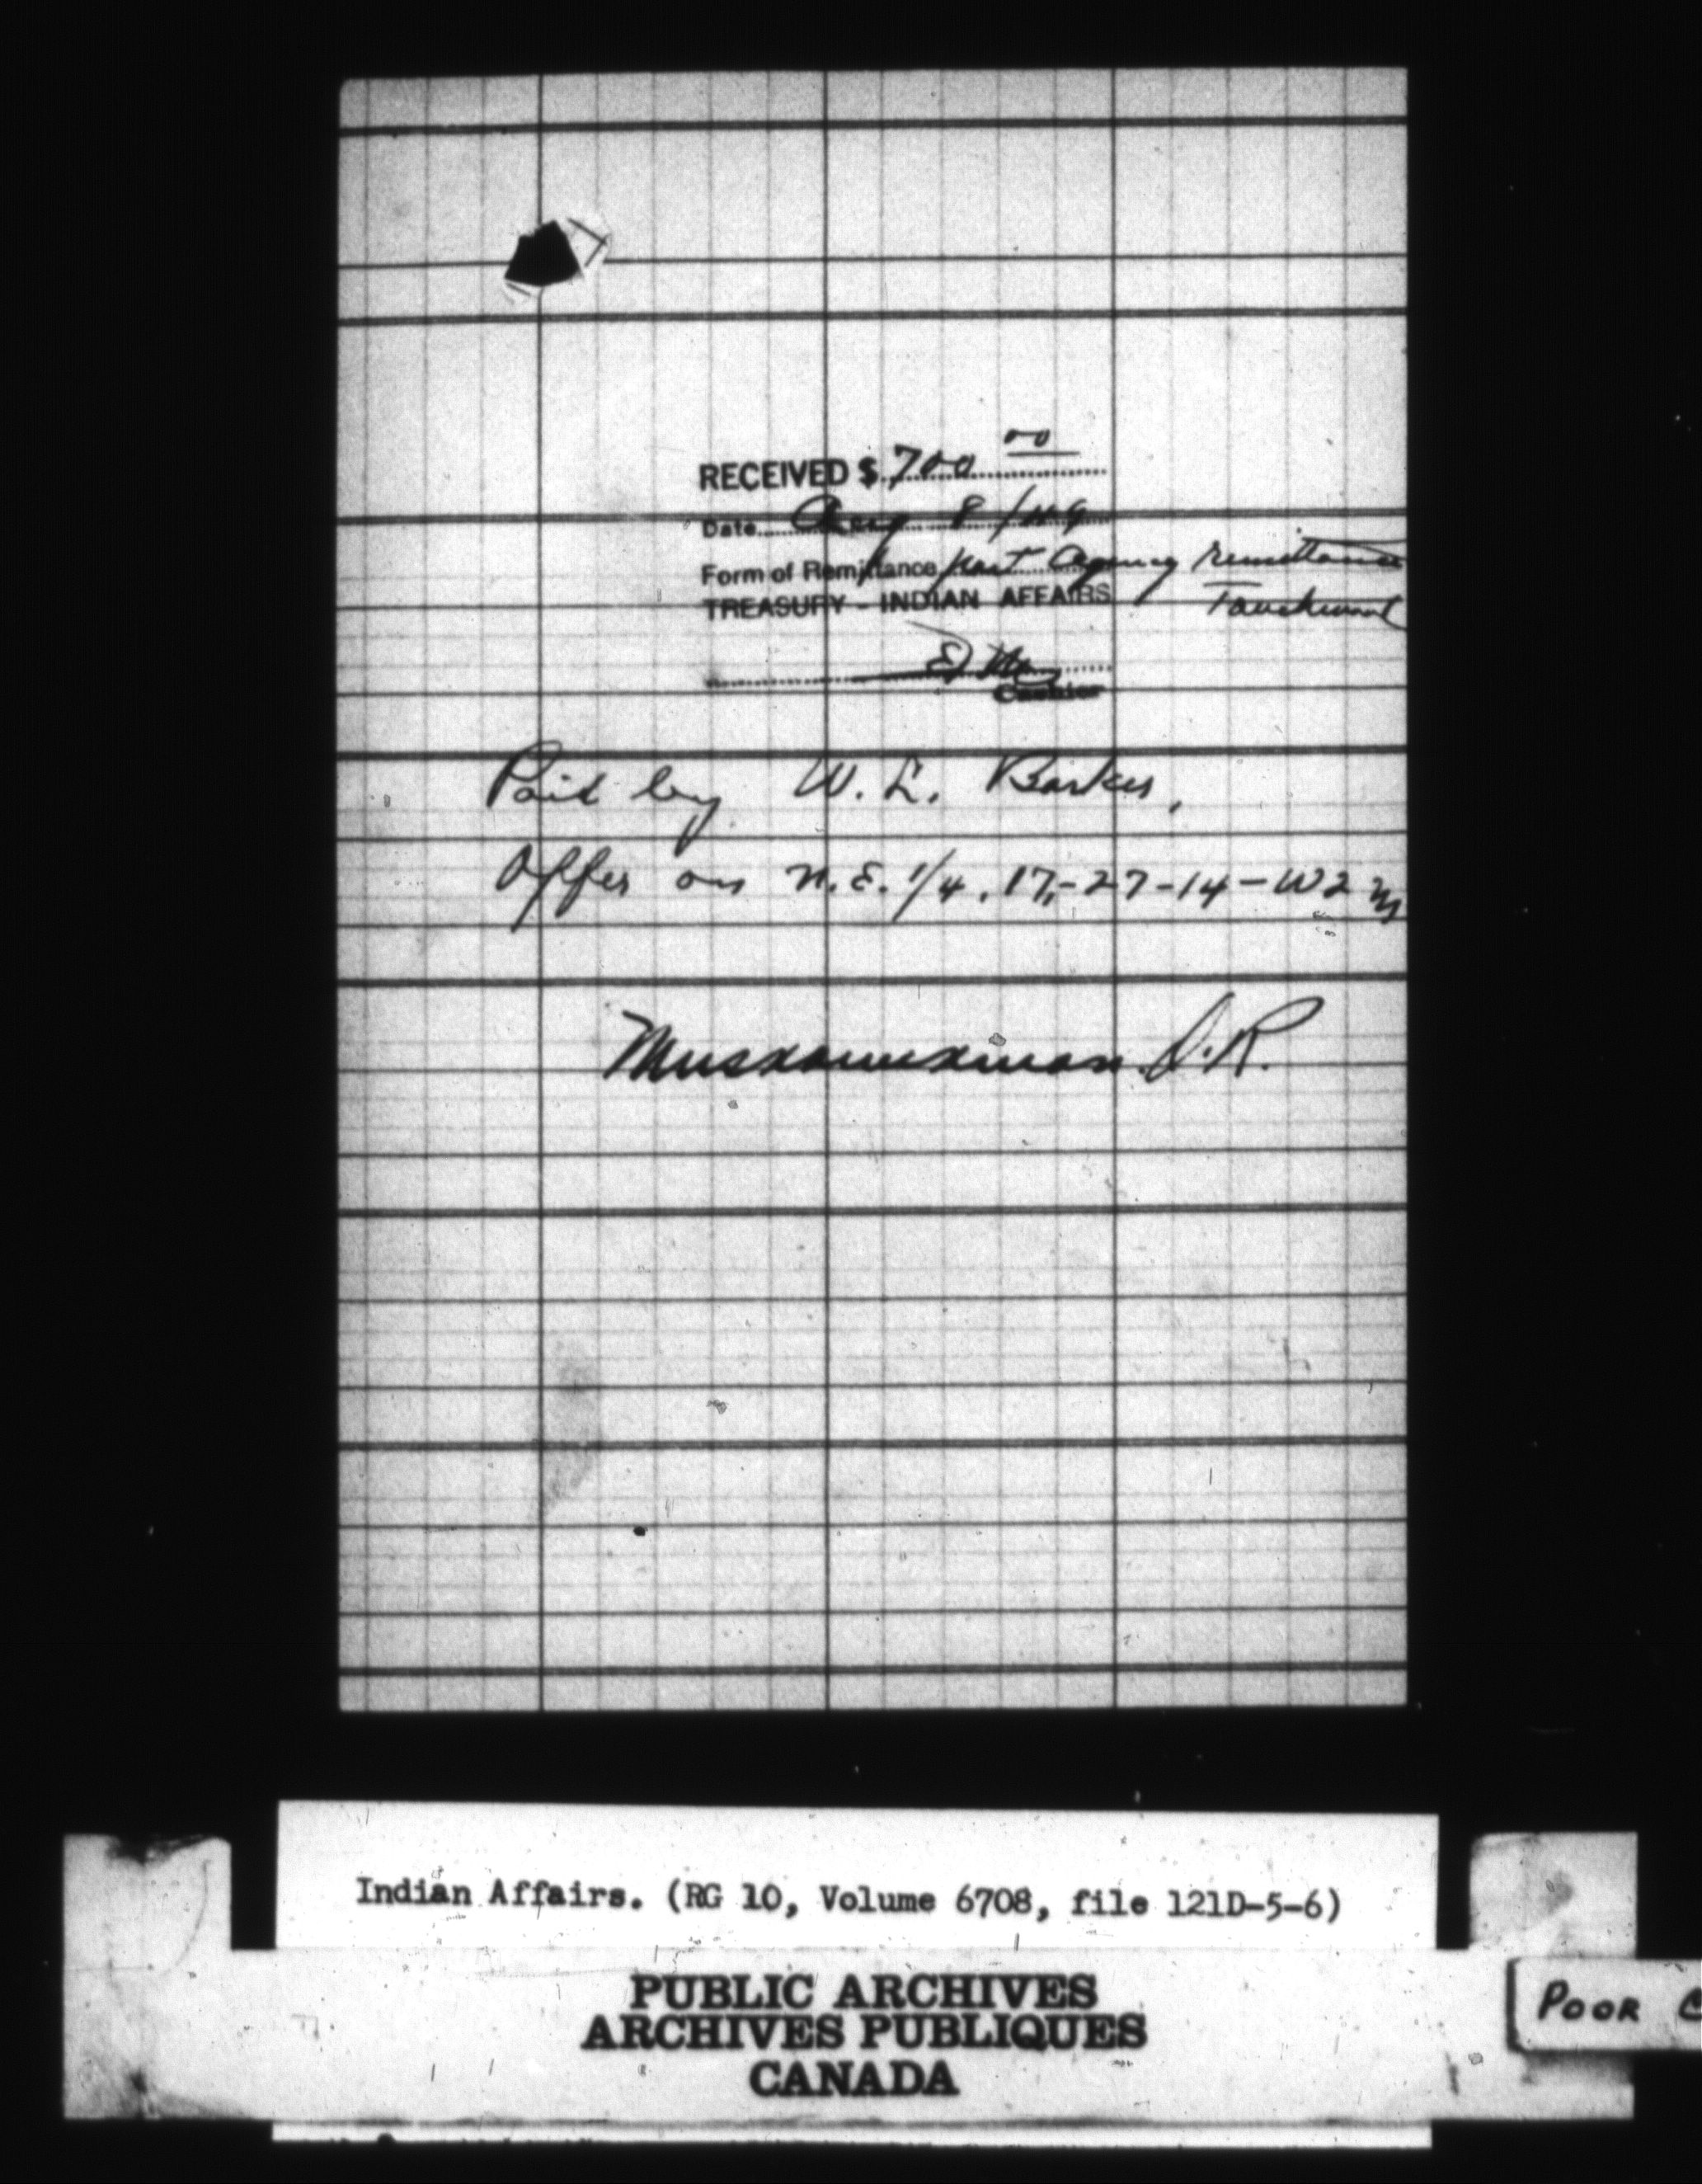 RECEIVED $ 700 00
Date Aug 8/49
Form of Remittance part Agency remittance
TREASURY - INDIAN AFFAIRS Touchwood
Cashier
Paid by W. L. Barker,
Offer on N.E. 1/4. 17-27-14-W2M
Muskowekwan I.R.
Indian Affairs. (RG 10, Volume 6708, file 121D-5-6)
PUBLIC ARCHIVES
ARCHIVES PUBLIQUES
CANADA
POOR C